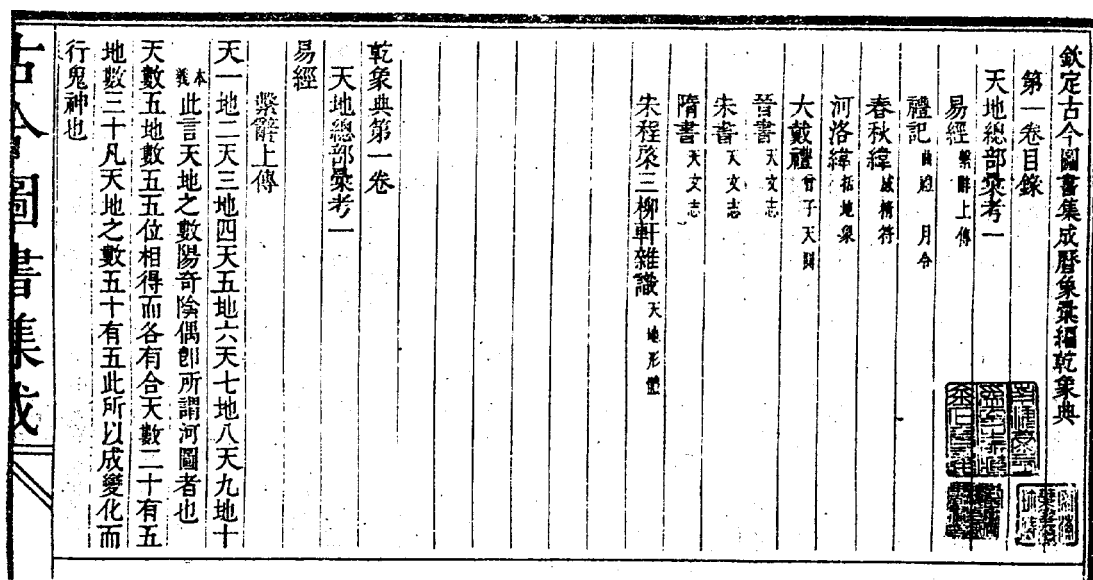 欽定古今圖書集成曆象彙編乾象典
第一卷目錄
天地總部彙考一
易經 繫辭上傳
禮記 曲禮 月令
春秋緯 感精符
河洛緯 括地象
大戴禮 曾子天圓
晉書 天文志
宋書 天文志
隋書 天文志
宋程棨三柳軒雜識 天地形體
乾象典第一卷
天地總部彙考一
易經
繫辭上傳
天一地二天三地四天五地六天七地八天九地十
本義 此言天地之數陽奇陰偶卽所謂河圖者也
天數五地數五五位相得而各有合天數二十有五
地數三十凡天地之數五十有五此所以成變化而
行鬼神也
古今圖書集成